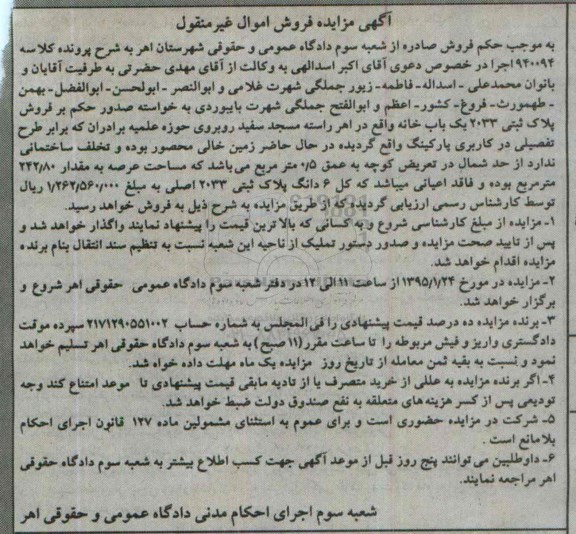 آگهی مزایده فروش اموال غیرمنقول
به موجب حکم فروش صادره از شعبه سوم دادگاه عمومی و حقوقی شهرستان اهر به شرح پرونده کلاسه
۹۴۰۰۹۴اجرا در خصوص دعوی آقای اکبر اسدالهی به وکالت از آقای مهدی حضرتی به طرفیت آقایان و
بانوان محمدعلی - اسداله- فاطمه- زیور جملگی شهرت غلامی و ابوالنصر - ابولحسن- ابوالفضل- بهمن
- طهمورث- فروغ- کشور- اعظم و ابوالفتح جملگی شهرت بایبوردی به خواسته صدور حکم بر فروش
پلاک ثبتی ۲۰۳۳ یک باب خانه واقع در اهر راسته مسجد سفید روبروی حوزه علمیه برادران که برابر طرح
تفصیلی در کاربری پارکینگ واقع گردیده در حال حاضر زمین خالی محصور بوده و تخلف ساختمانی
ندارد از حد شمال در تعریض کوچه به عمق ۰/۵ متر مربع می باشد که مساحت عرصه به مقدار ۲۴۲/۸۰
مترمربع بوده و فاقد اعیانی میباشد که کل ۶ دانگ پلاک ثبتی ۲۰۳۳ اصلی به مبلغ ۱/۲۶۲/۵۶۰/۰۰۰ ریال
توسط کارشناس رسمی ارزیابی گردیده که از طریق مزایده به شرح ذیل به فروش خواهد رسید.
۱- مزایده از مبلغ کارشناسی شروع و به کسانی که بالاترین قیمت را پیشنهاد نمایند واگذار خواهد شد و
پس از تایید صحت مزایده و صدور دستور تملیک از ناحیه این شعبه نسبت به تنظیم سند انتقال بنام برنده
مزایده اقدام خواهد شد.
۲- مزایده در مورخ ۱۳۹۵/۱/۲۴ از ساعت ۱۱ الی ۱۲ در دفتر شعبه سوم دادگاه عمومی حقوقی اهر شروع و
برگزار خواهد شد.
۳- برنده مزایده ده درصد قیمت پیشنهادی را فی المجلس به شماره حساب ۲۱۷۱۲۹۰۵۵۱۰۰۲ سپرده موقت
دادگستری واریز و فیش مربوطه را تا ساعت مقرر (۱۱ صبح) به شعبه سوم دادگاه حقوقی اهر تسلیم خواهد
نمود و نسبت به بقیه ثمن معامله از تاریخ روز مزایده یک ماه مهلت داده خواه شد.
۴- اگر برنده مزایده به عللی از خرید متصرف یا از تادیه مابقی قیمت پیشنهادی تا موعد امتناع کند وجه
تودیعی پس از کسر هزینه های متعلقه به نفع صندوق دولت ضبط خواهد شد.
۵- شرکت در مزایده حضوری است و برای عموم به استثنای مشمولین ماده ۱۲۷ قانون اجرای احکام
بلامانع است .
۶- داوطلبین می توانند پنج روز قبل از موعد آگهی جهت کسب اطلاع بیشتر به شعبه سوم دادگاه حقوقی
اهر مراجعه نمایند.
شعبه سوم اجرای احکام مدنی دادگاه عمومی و حقوقی اهر